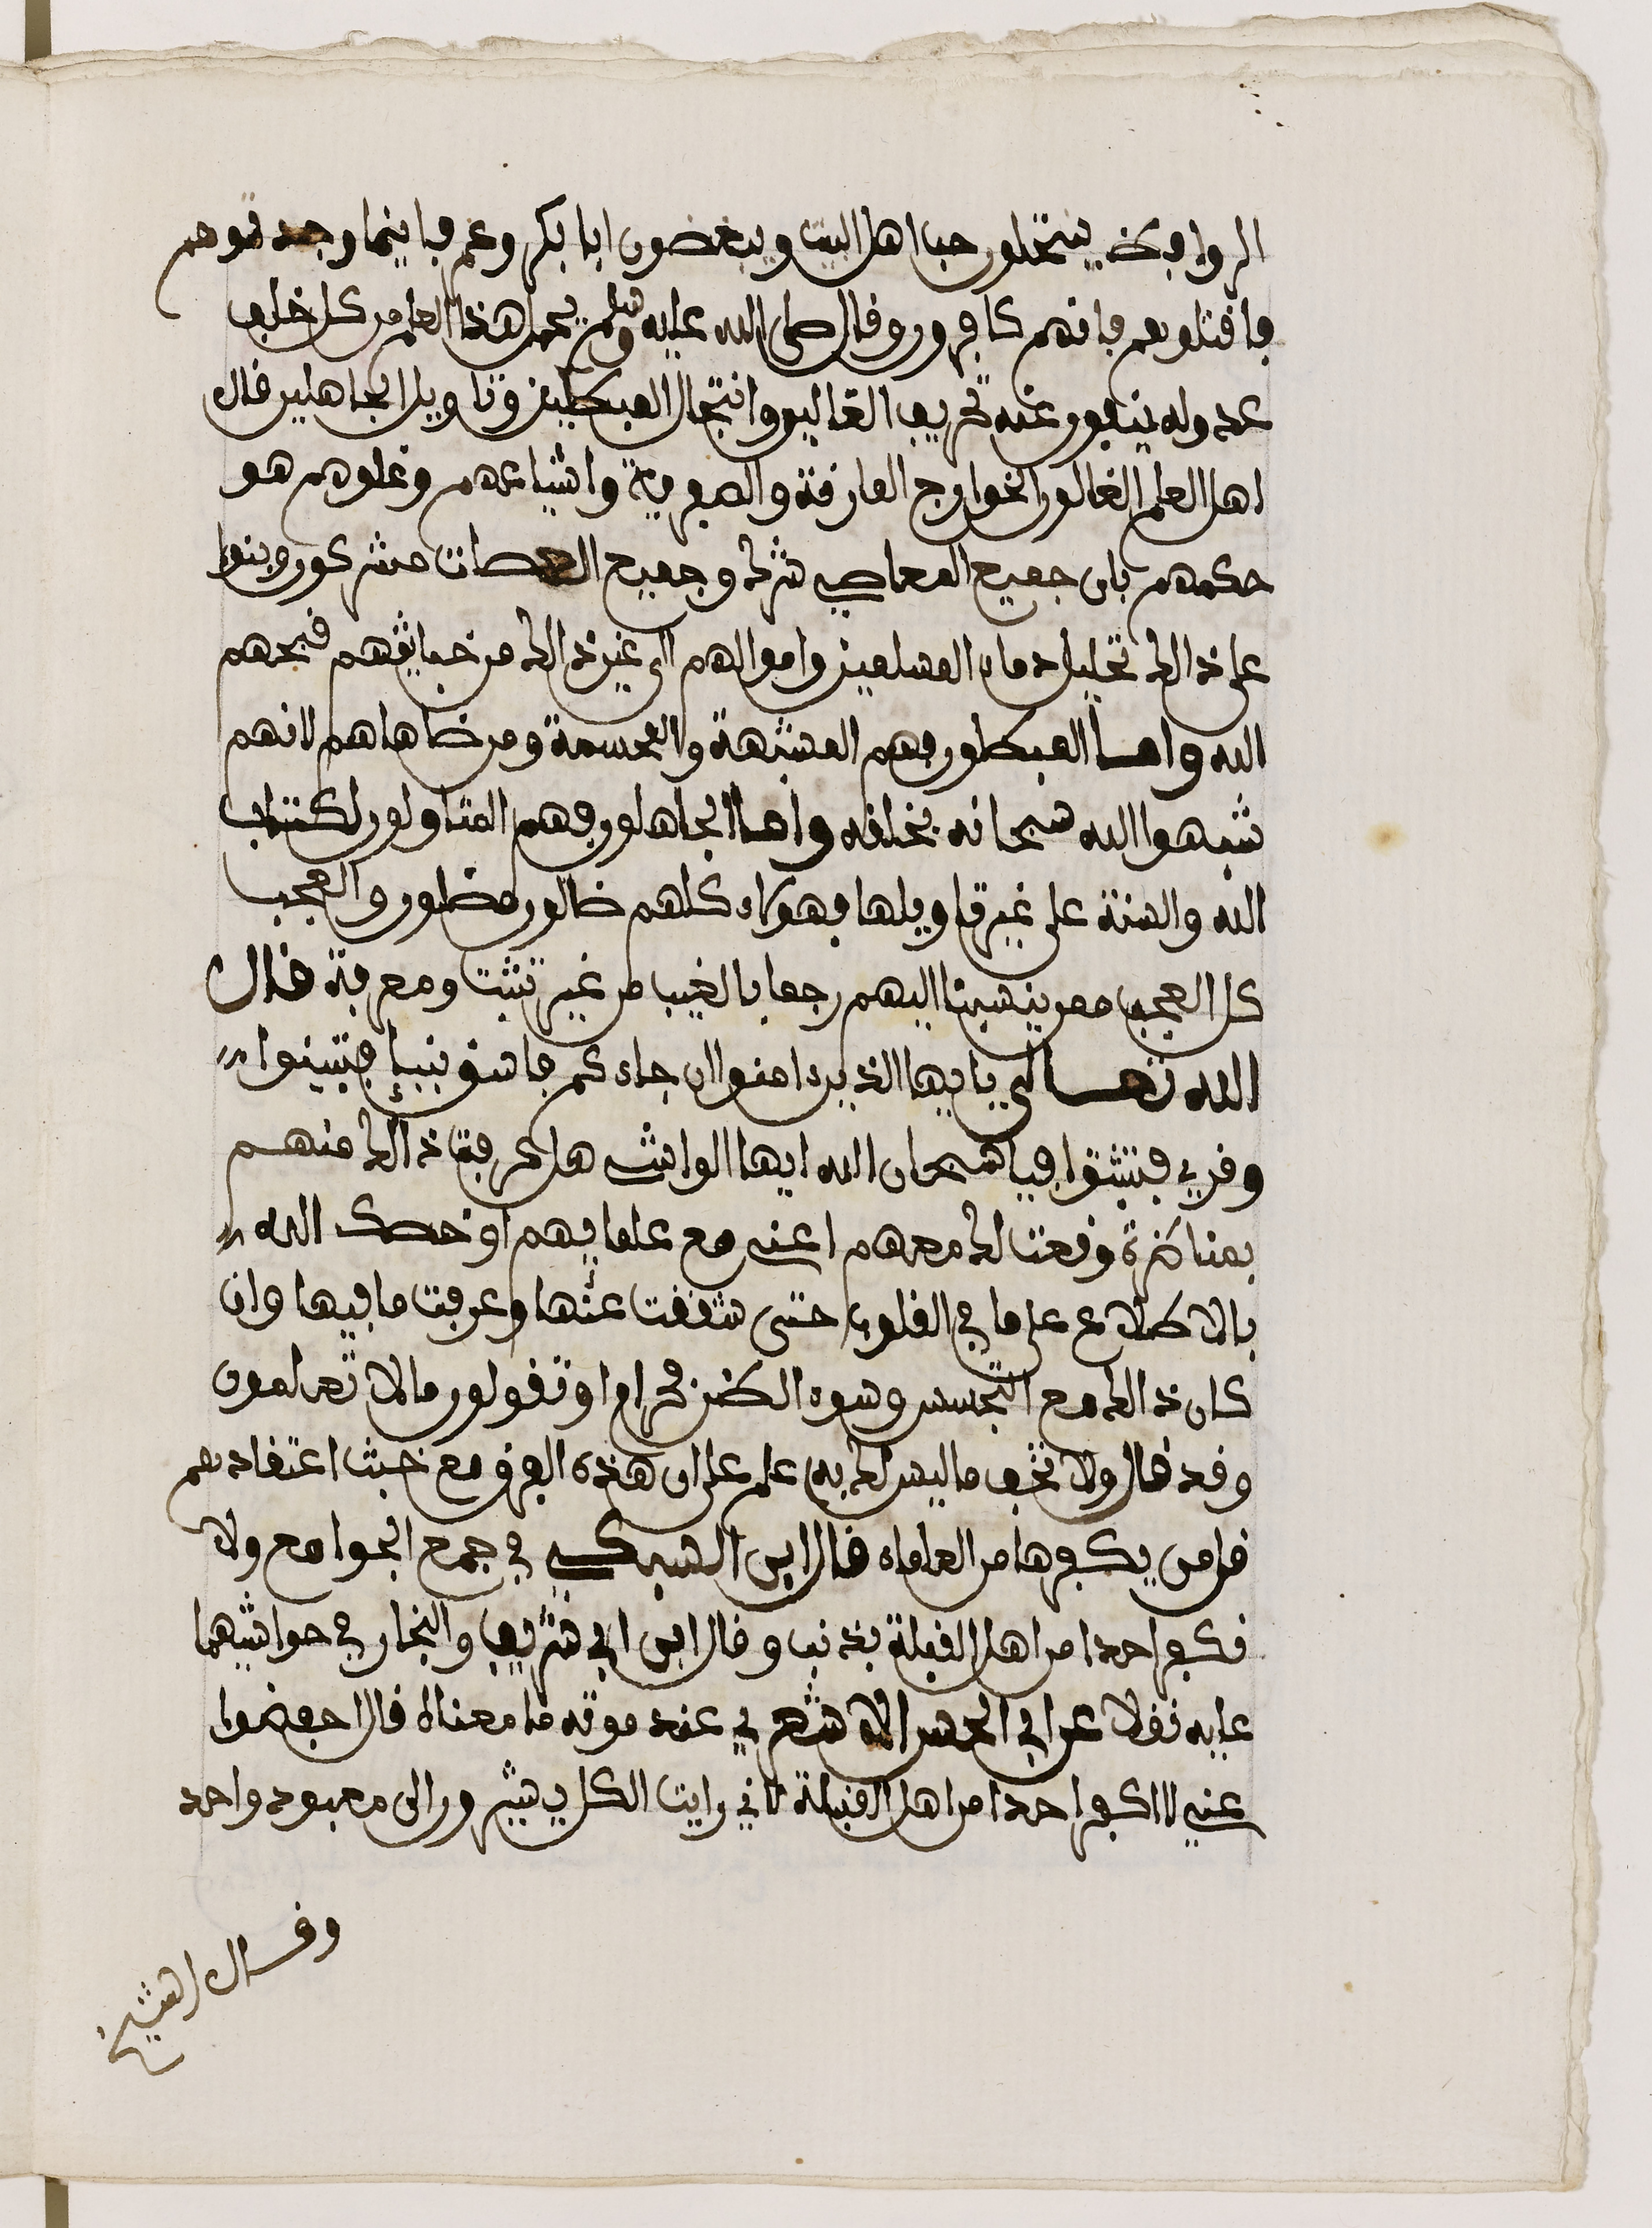 الروافض ينتحلون حب اهل البيت ويبغضون ابا بكر وعمر فاينما وجدتموهم
فاقتلوهم فانهم كافرون وقال صلى الله عليه وسلم يحمل هذا العلم من كل خلف
عدوله ينفون عنه تحريف الغالين وانتحال المبطلين وتاويل الجاهلين قال
اهل العلم الغالون الخوارج المارقة والصفرية واشياعهم وغلوهم هو
حكمهم بان جميع المعاصي شرك وجميع العصات مشركون وبنوا
على ذالك تحليل دماء المسلمين واموالهم الى غير ذالك من خبايثهم قبحهم
الله واما المبطلون فهم المشبهة والمجسمة ومن ضاهاهم لانهم
شبهوا الله سبحانه بخلقه واما الجاهلون فهم المتاولون لكتاب
الله والسنة على غير تاويلها فهؤلاء كلهم ضالون مضلون والعجب
كل العجب ممن ينسبنا اليهم رجما بالغيب من غير تثبت ومعرفة قال
الله تعالى يا ايها الذين ءامنوا ان جاءكم فاسق بنبإ فتبينوا
وقرئ فتثبتوا فيا سبحان الله ايها الواشي هل عرفت ذالك منهم
بمناظرة وقعت لك معهم اعني مع علمايهم او خصك الله
بالاطلاع على ما في القلوب حتى شققت عنها وعرفت ما فيها وان
كان ذالك مع التجسس وسوء الظن فحرام او تقولون ما لا تعلمون
وقد قال ولا تقف ما ليس لك به علم على ان هذه الفرق مع خبث اعتقادهم
قل من يكفرها من العلماء قال ابن السبكي في جمع الجوامع ولا
نكفر احدا من اهل القبلة بذنب وقال ابن ابي شريف والنجار في حواشيهما
عليه نقلا عن ابي الحسن الاشعري عند موته ما معناه قال احفظوا
عني لا اكفر احدا من اهل القبلة لاني رايت الكل يشيرون الى معبود واحد
وقال الشيخ